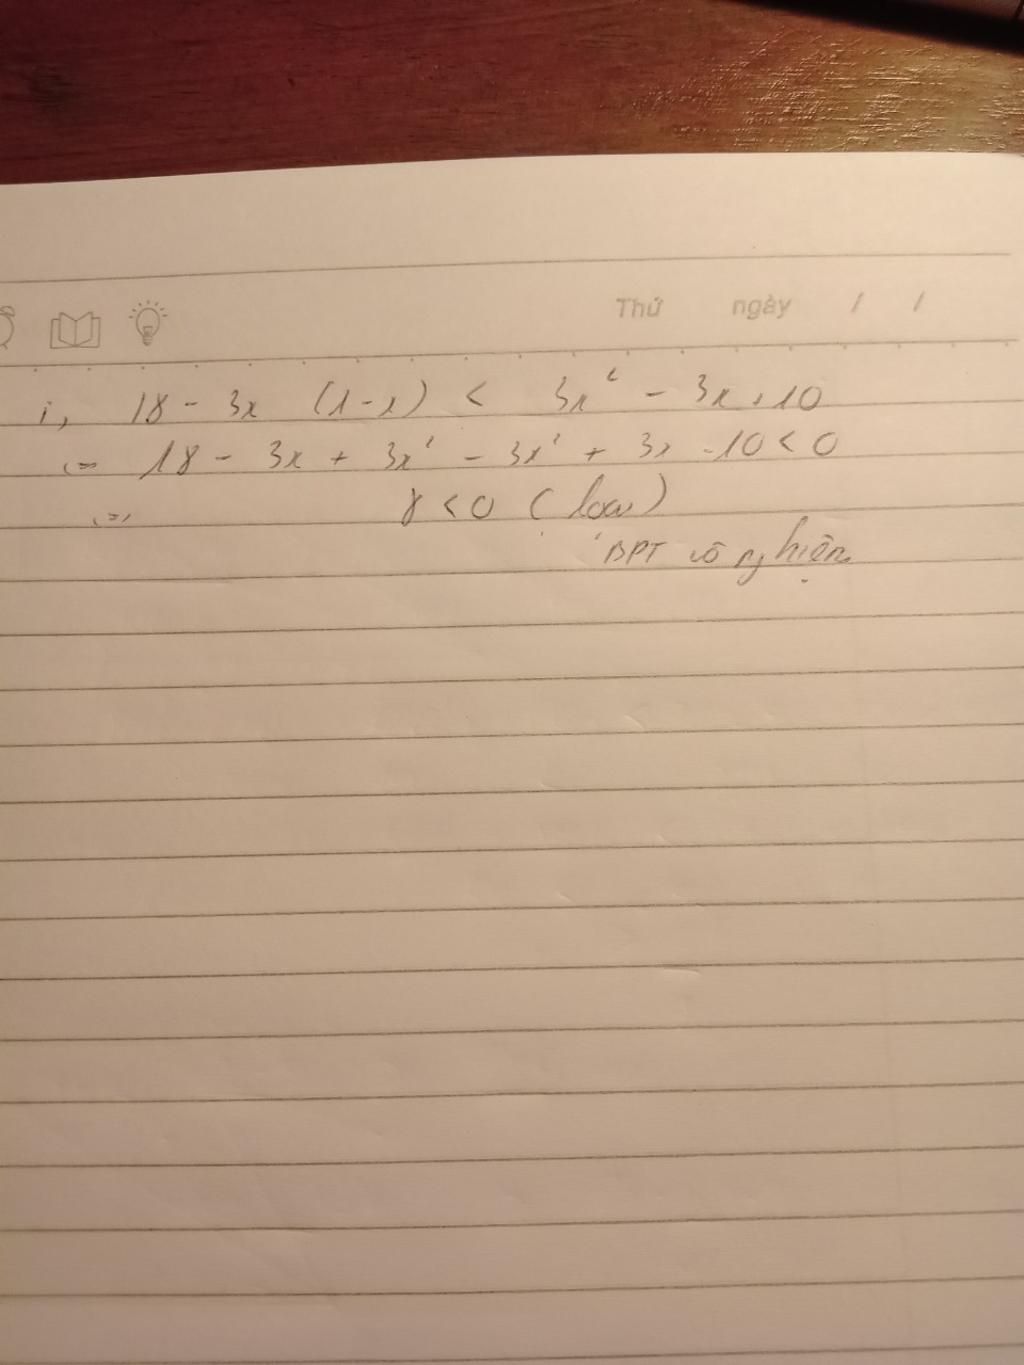 Thứ ngày / /
i, 18 - 3x (1-x) < 3x² - 3x + 10
<=> 18 - 3x + 3x² - 3x² + 3x - 10 < 0
<=> 8 < 0 (loại)
BPT vô nghiệm